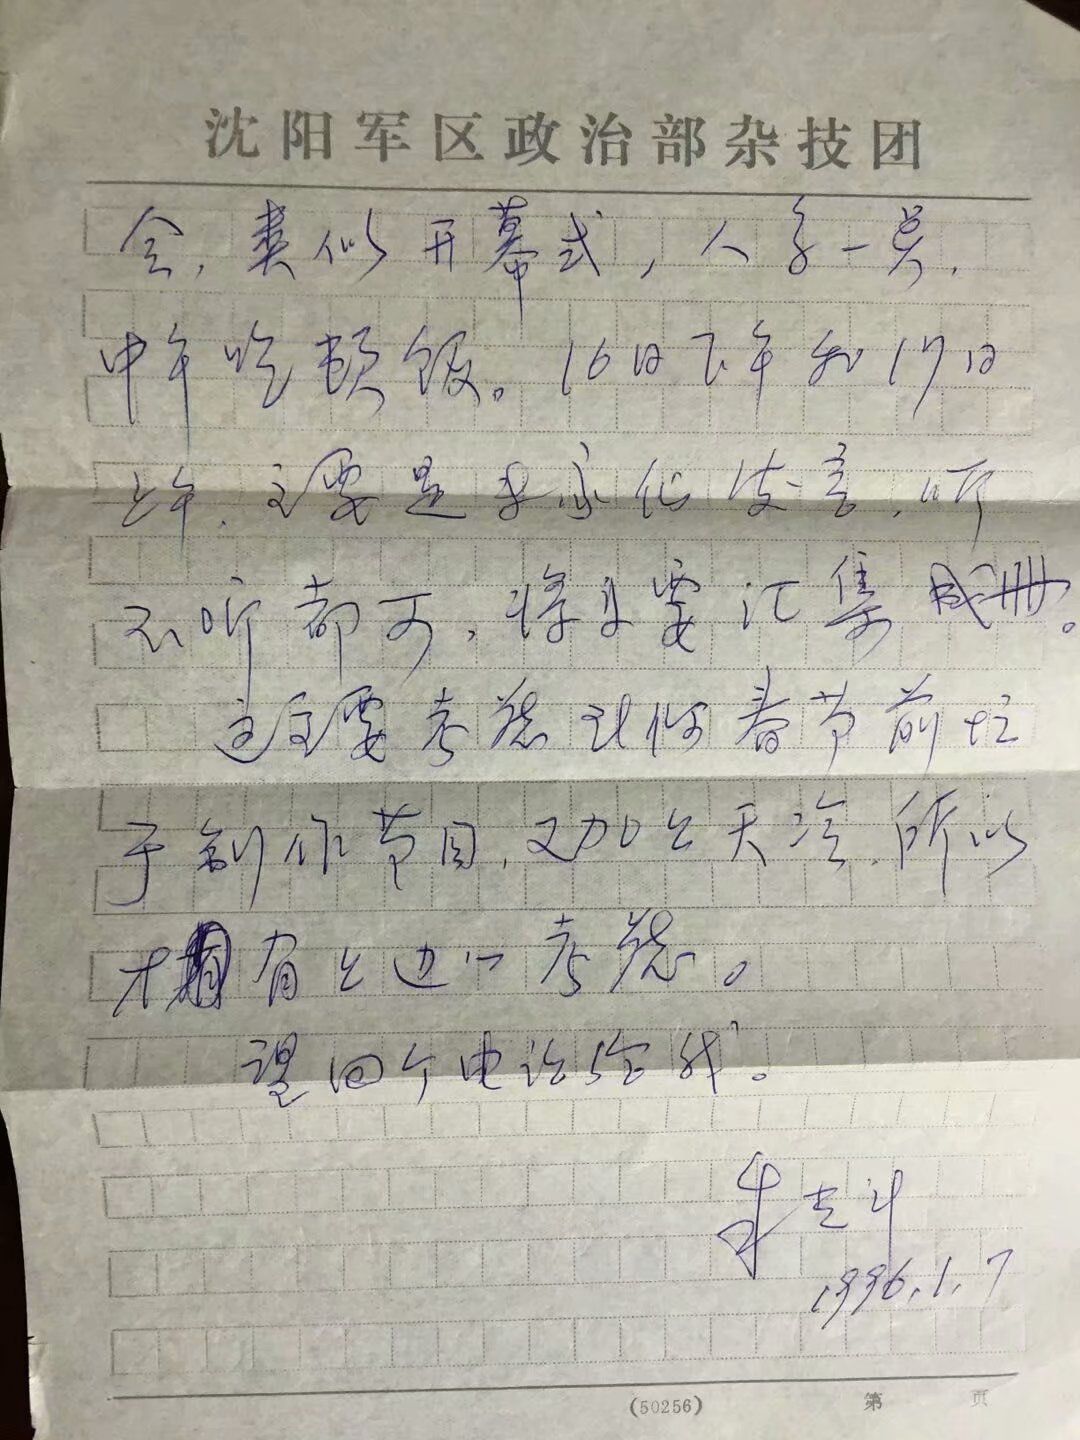 沈阳军区政治部杂技团
会，类似开幕式，人多一点，
中午吃顿饭。16日下午和17日
上午，主要是专家们发言，听
不听都可，将来要汇集成册。
这主要考虑到你春节前忙
于制作节目，又加上天冷，所以
才有上边的考虑。
望回个电话给我。
1996.1.7
(50256)
第 页